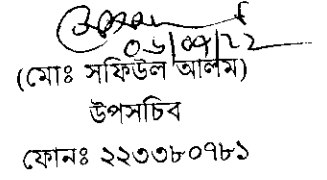 ০৬/০৭/২২
(মোঃ সফিউল আলম)
উপসচিব
ফোনঃ ২২৩৩৮০৭৮১